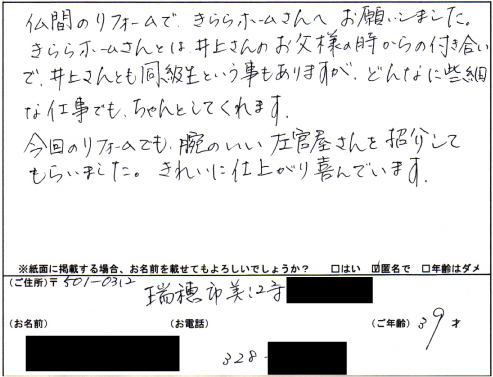 仏間のリフォームで、きららホームさんへ お願いしました。
きららホームさんとは、井上さんのお父様の時からの付き合い
で、井上さんとも同級生という事もありますが、どんなに些細
な仕事でも、ちゃんとしてくれます。
今回のリフォームでも、腕のいい 左官屋さんを 紹介して
もらいました。 きれいに仕上がり喜んでいます。
※紙面に掲載する場合、お名前を載せてもよろしいでしょうか？ □はい ☑匿名で □年齢はダメ
(ご住所)〒501-0312
瑞穂市美江寺
(お名前) (お電話) (ご年齢) 39 才
328-